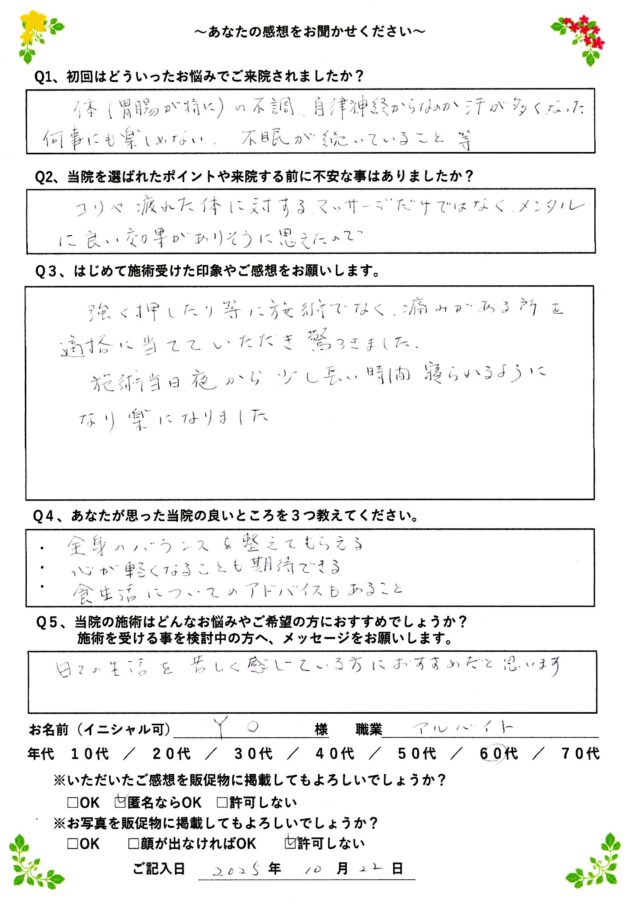 ～あなたの感想をお聞かせください～
Q1、初回はどういったお悩みでご来院されましたか？
体（胃腸が特に）の不調、自律神経からなのか汗が多くなった
何事にも楽しめない、不眠が続いていること等
Q2、当院を選ばれたポイントや来院する前に不安な事はありましたか？
コリや疲れた体に対するマッサージだけではなく、メンタル
に良い効果がありそうに思えたので
Q３、はじめて施術受けた印象やご感想をお願いします。
強く押したり等に施術でなく、痛みがある所を
適格に当てていただき驚ろきました。
施術当日夜から少し長い時間寝られるように
なり楽になりました
Q４、あなたが思った当院の良いところを３つ教えてください。
・全身のバランスを整えてもらえる
・心が軽くなることも期待できる
・食生活についてのアドバイスもあること
Q５、当院の施術はどんなお悩みやご希望の方におすすめでしょうか？
施術を受ける事を検討中の方へ、メッセージをお願いします。
日々の生活を苦しく感じている方におすすめだと思います
お名前（イニシャル可） Y O 様 職業 アルバイト
年代 10代 ／ 20代 ／ 30代 ／ 40代 ／ 50代 ／ 60代 ／ 70代
※いただいたご感想を販促物に掲載してもよろしいでしょうか？
□OK ☑匿名ならOK □許可しない
※お写真を販促物に掲載してもよろしいでしょうか？
□OK □顔が出なければOK ☑許可しない
ご記入日 2025年 10月22日